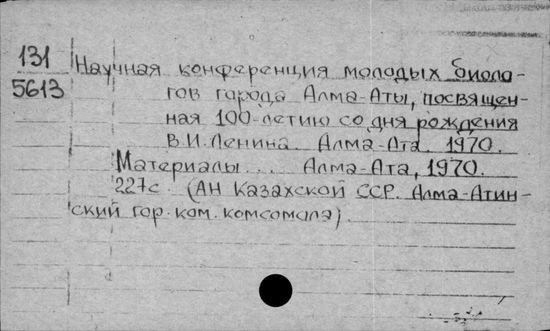 131
5613
Научная конференция молодых биоло-
гов города Алма-Аты, посвящен-
ная 100-летию со дня рождения
В.И. Ленина. Алма-Ата. 1970.
Материалы... Алма-Ата, 1970.
227с. (АН Казахской ССР. Алма-Атин-
ский гор. ком. комсомола).